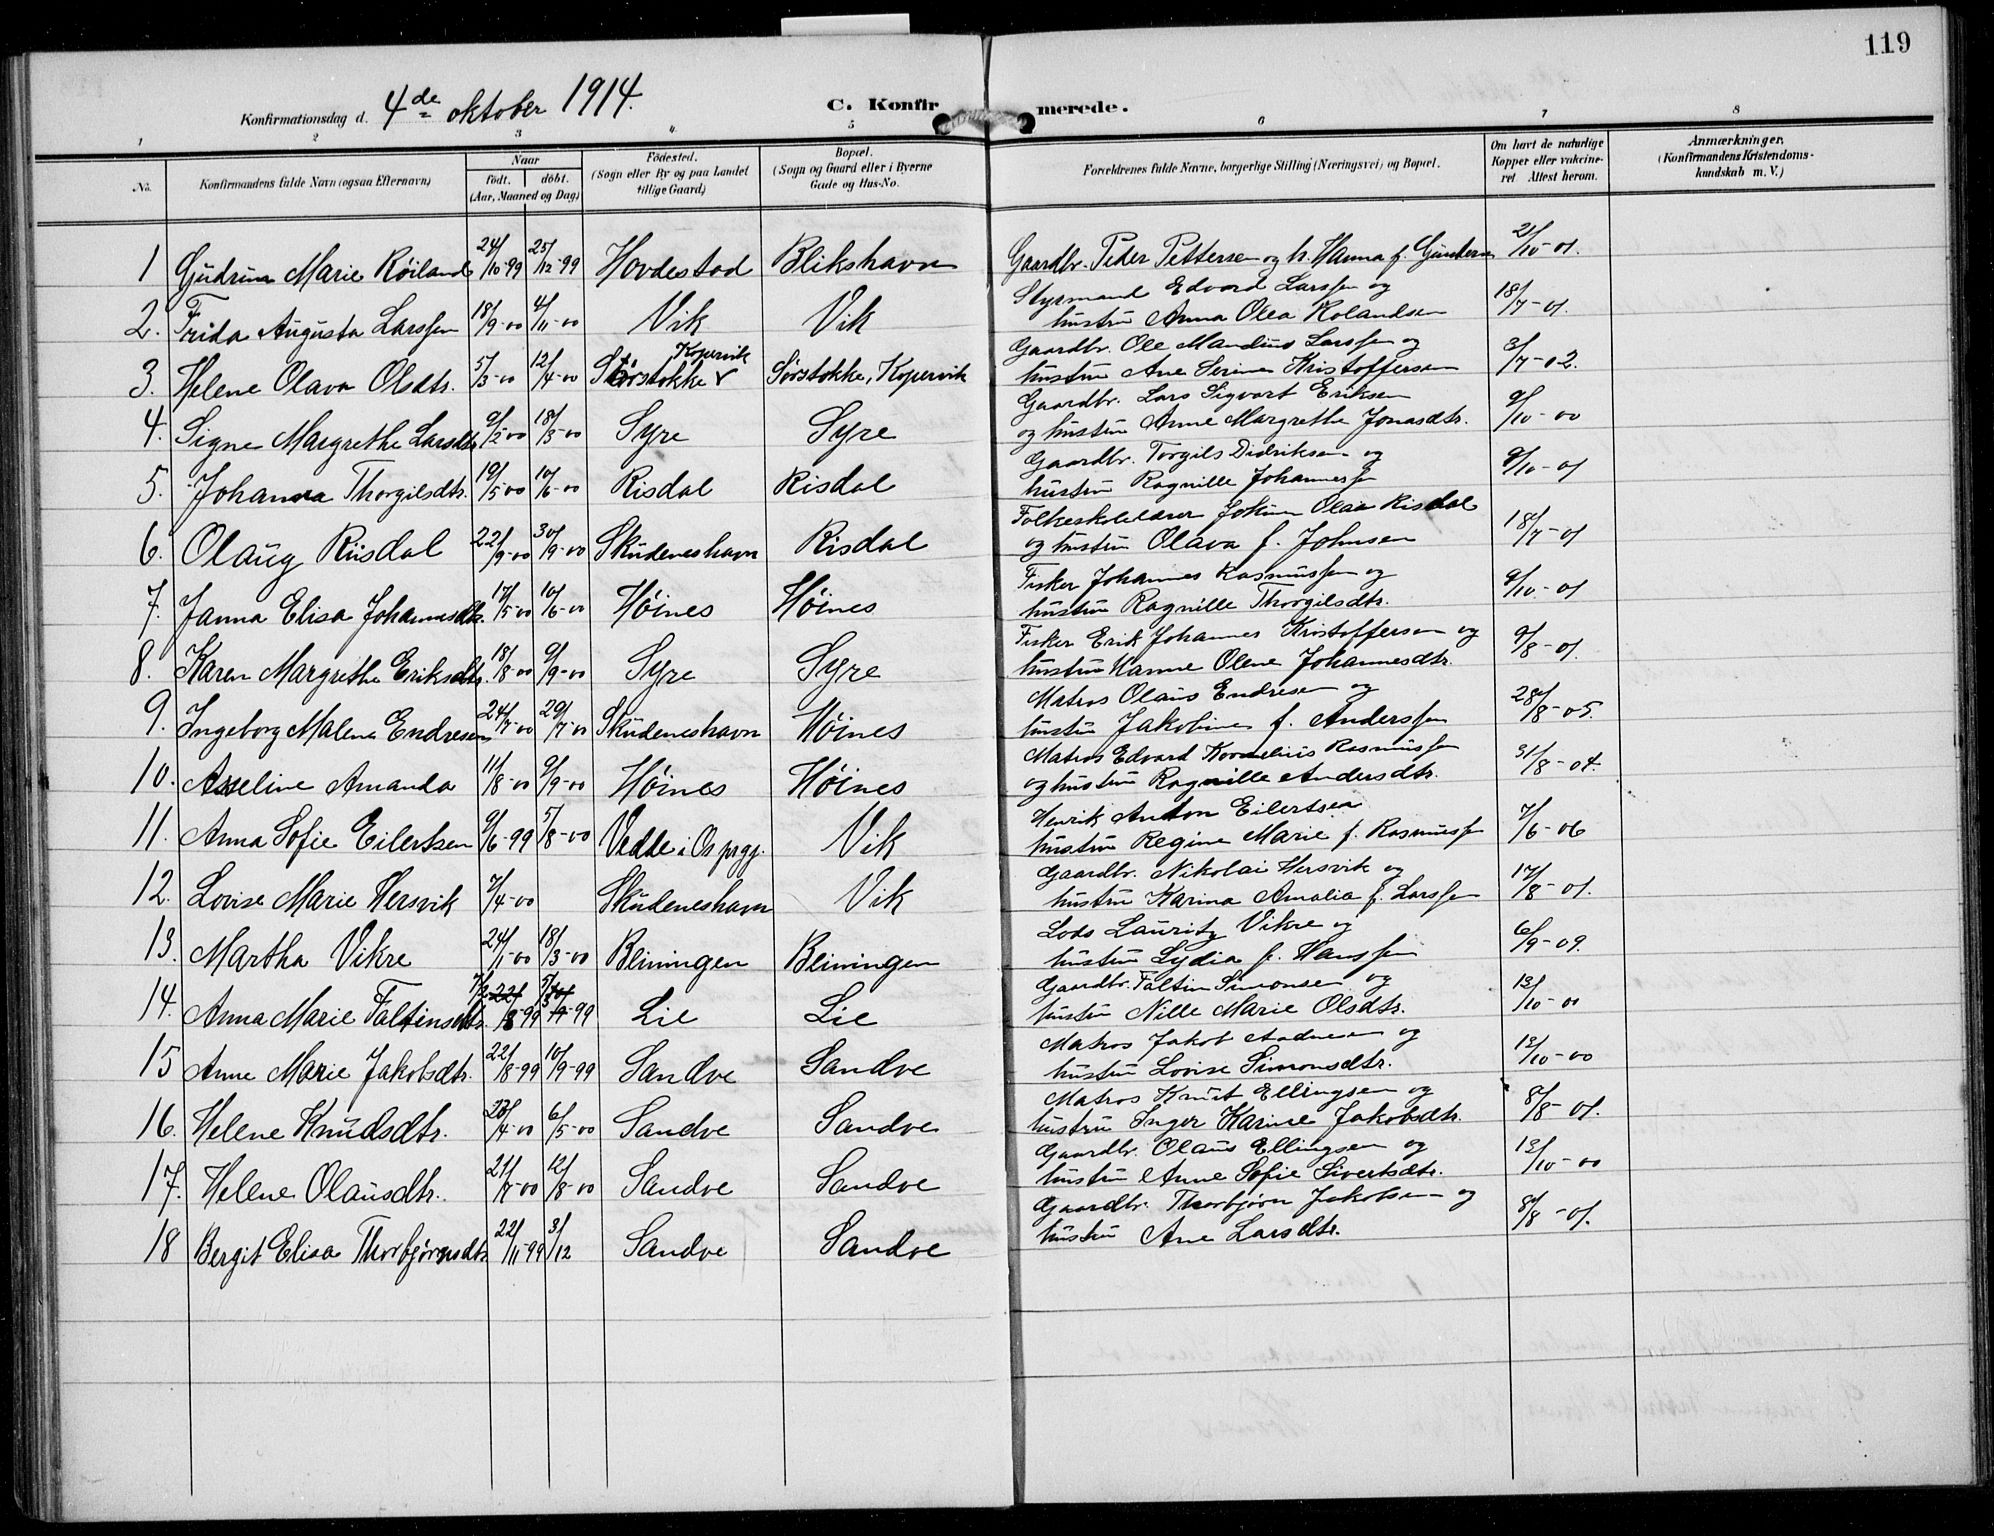 119
Konfirmationsdag d. 4de oktober 1914.
C. Konfirmerede.
1 2 3 4 5 6 7 8
No. Konfirmandens fulde Navn (ogsaa Efternavn) Naar födt. döbt. (Aar, Maaned og Dag) Födested. (Sogn eller By og paa Landet tillige Gaard) Bopæl. (Sogn og Gaard eller i Byerne Gade og Hus-No. Forældrenes fulde Navne, borgerlige Stilling (Næringsvei) og Bopæl. Om havt de naturlige Kopper eller vakcineret Attest herom. Anmærkninger, (Konfirmandens Kristendomskundskab m. V.)
1 Gudrun Marie Röiland 24/10-99 25/12-99 Hovdestad Blikshavn Gaardbr. Peder Pettersen og h. Hanna f. Gundersen 21/10-01.
2. Frida Augusta Larssen 18/9-00 4/11-00 Vik Vik Styrmand Edvard Larssen og
hustru Anna Olea Rolandsen 18/7-01.
3. Helene Olava Olsdtr. 5/3-00 12/4-00 Sørstokke Kopervik Sörstokke, Kopervik Gaardbr. Ole Mandius Larssen og
hustru Ane Serine Kristoffersen 3/7-02.
4. Signe Margrethe Larsdtr 9/2-00 18/3-00 Syre Syre Gaardbr. Lars Sigvart Eriksen
og hustru Anne Margrethe Jonasdtr. 9/10-00
5. Johanna Thorgilsdtr. 19/5-00 10/6-00 Risdal Risdal Gaardbr. Torgils Didriksen og
hustru Ragnille Johannessen 9/10-01
6. Olaug Riisdal 22/9-00 30/9-00 Skudeneshavn Risdal Folkeskolelærer Jokum Olai Risdal
og hustru Olava f. Johnsen 18/7-01
7. Janna Elisa Johannesdtr. 17/5-00 10/6-00 Höines Höines Fisker Johannes Rasmussen og
hustru Ragnille Thorgilsdtr. 9/10-01
8. Karen Margrethe Eriksdtr. 18/8-00 9/9-00 Syre Syre Fisker Erik Johannes Kristoffersen og
hustru Hanne Olene Johannesdtr. 9/8-01.
9. Ingeborg Malene Endresen 24/7-00 29/7-00 Skudeneshavn Höines Matros Olaus Endresen og
hustru Jakobine f. Anderssen 28/8-05.
10. Asseline Amanda 11/8-00 9/9-00 Höines Höines Matros Edvard Kornelius Rasmussen
og hustru Ragnille Andersdtr. 31/8-04.
11. Anna Sofie Eilertsen 9/6-99 5/8-00 Vedde i Os prgj. Vik Henrik Anton Eilertsen
hustru Regine Marie f. Rasmussen 7/6-06
12. Lovise Marie Hersvik 7/4-00 Skudeneshavn Vik Gaardbr. Nikolai Hersvik og
hustru Karina Amalia f. Larssen 17/8-01.
13. Martha Vikre 24/1-00 18/3-00 Beiningen Beiningen Lods Lauritz Vikre og
hustru Lydia f. Hanssen 6/9-09.
14. Anna Marie Faltinsdtr. Lie Lie Gaardbr. Faltin Simonsen og
hustru Nille Marie Olsdtr. 13/10-00
15 Anne Marie Jakobsdtr. 22/8-99 10/9-99 Sandve Sandve Matros Jakob Andresen og
hustru Lovise Simonsdtr. 13/10-00
16. Helene Knudsdtr. 23/4-00 6/5-00 Sandve Sandve Matros Knut Ellingsen og
hustru Inger Karine Jakobsdtr. 8/8-01.
17. Helene Olausdtr. 21/7-00 12/8-00 Sandve Sandve Gaardbr. Olaus Ellingsen og
hustru Anne Sofie Sivertsdtr. 13/10-00
18 Bergit Elisa Thorbjörnsdtr 22/11-99 3/12 Sandve Sandve Gaardbr. Thorbjørn Jakobsen og
hustru Ane Larsdtr. 8/8-01.